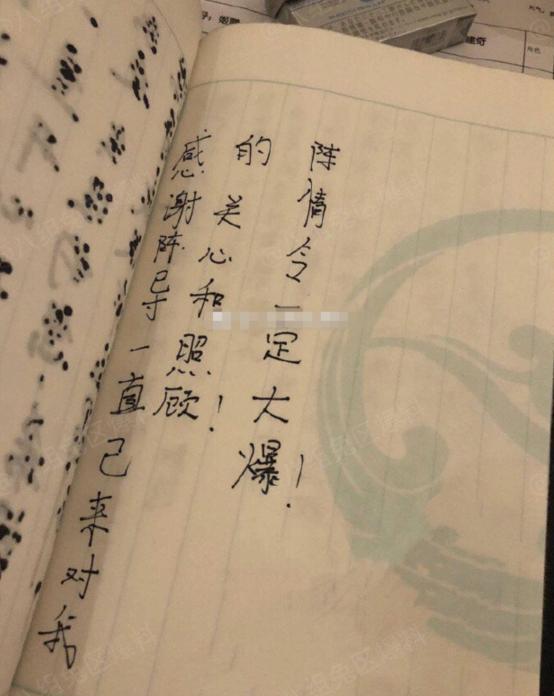 感谢陈导一直己来对我
的关心和照顾!
陈情令一定大爆!
角色